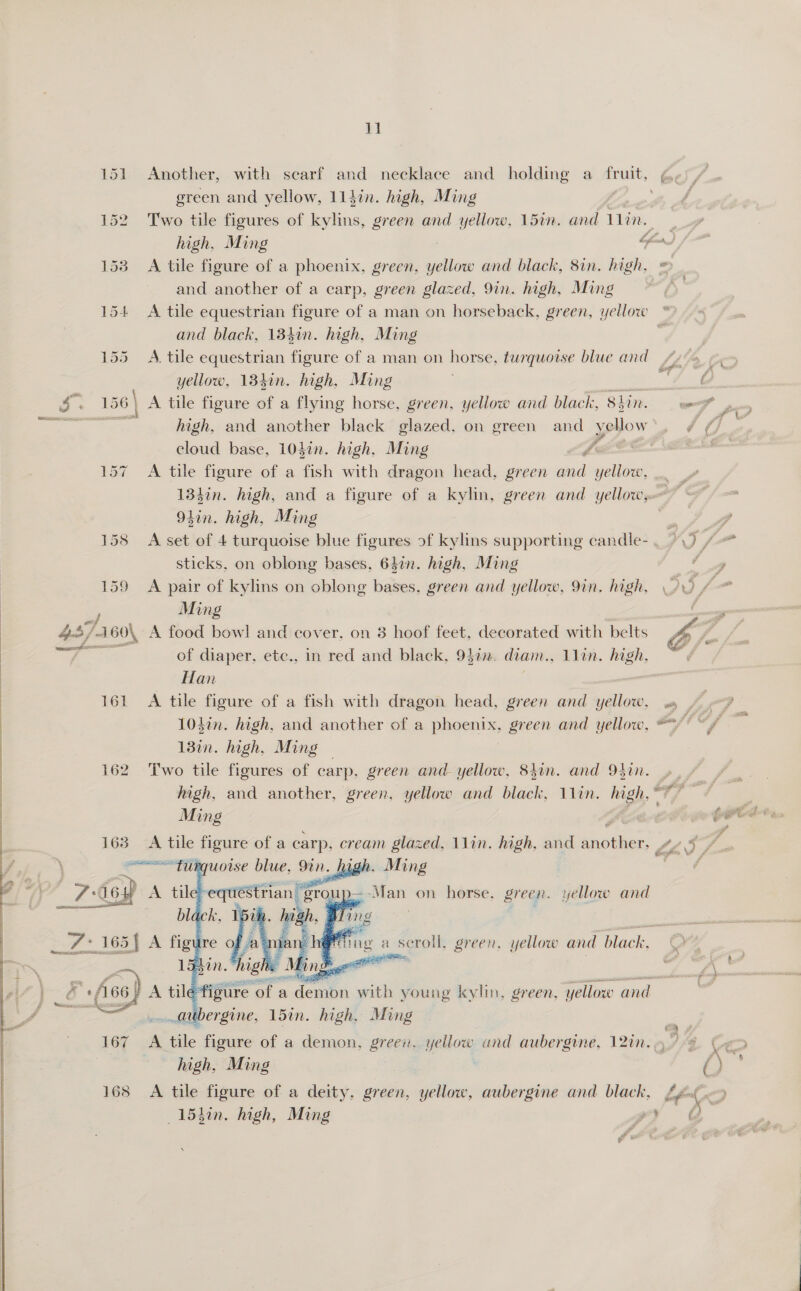 11
151 Another, with scarf and necklace and holding a fruit,
green and yellow, 11½in. high, Ming
152 Two tile figures of kylins, green and yellow, 15in. and 11in.
high, Ming
153 A tile figure of a phoenix, green, yellow and black, 8in. high,
and another of a carp, green glazed, 9in. high, Ming
154 A tile equestrian figure of a man on horseback, green, yellow
and black, 13½in. high, Ming
155 A tile equestrian figure of a man on horse, turquoise blue and
yellow, 13½in. high, Ming
156 A tile figure of a flying horse, green, yellow and black, 8½in.
high, and another black glazed, on green and yellow
cloud base, 10½in. high, Ming
157 A tile figure of a fish with dragon head, green and yellow,
13½in. high, and a figure of a kylin, green and yellow,
9½in. high, Ming
158 A set of 4 turquoise blue figures of kylins supporting candle-
sticks, on oblong bases, 6½in. high, Ming
159 A pair of kylins on oblong bases, green and yellow, 9in. high,
Ming
160 A food bowl and cover, on 3 hoof feet, decorated with belts
of diaper, etc., in red and black, 9½in. diam., 11in. high,
Han
161 A tile figure of a fish with dragon head, green and yellow,
10½in. high, and another of a phoenix, green and yellow,
13in. high, Ming
162 Two tile figures of carp, green and yellow, 8½in. and 9½in.
high, and another, green, yellow and black, 11in. high,
Ming
163 A tile figure of a carp, cream glazed, 11in. high, and another,
turquoise blue, 9in. high. Ming
164 A tile equestrian group—Man on horse, green, yellow and
black, 15in. high, Ming
165 A figure of a man holding a scroll, green, yellow and black,
15½in. high, Ming
166 A tile figure of a demon with young kylin, green, yellow and
aubergine, 15in. high, Ming
167 A tile figure of a demon, green, yellow and aubergine, 12in.
high, Ming
168 A tile figure of a deity, green, yellow, aubergine and black,
15½in. high, Ming